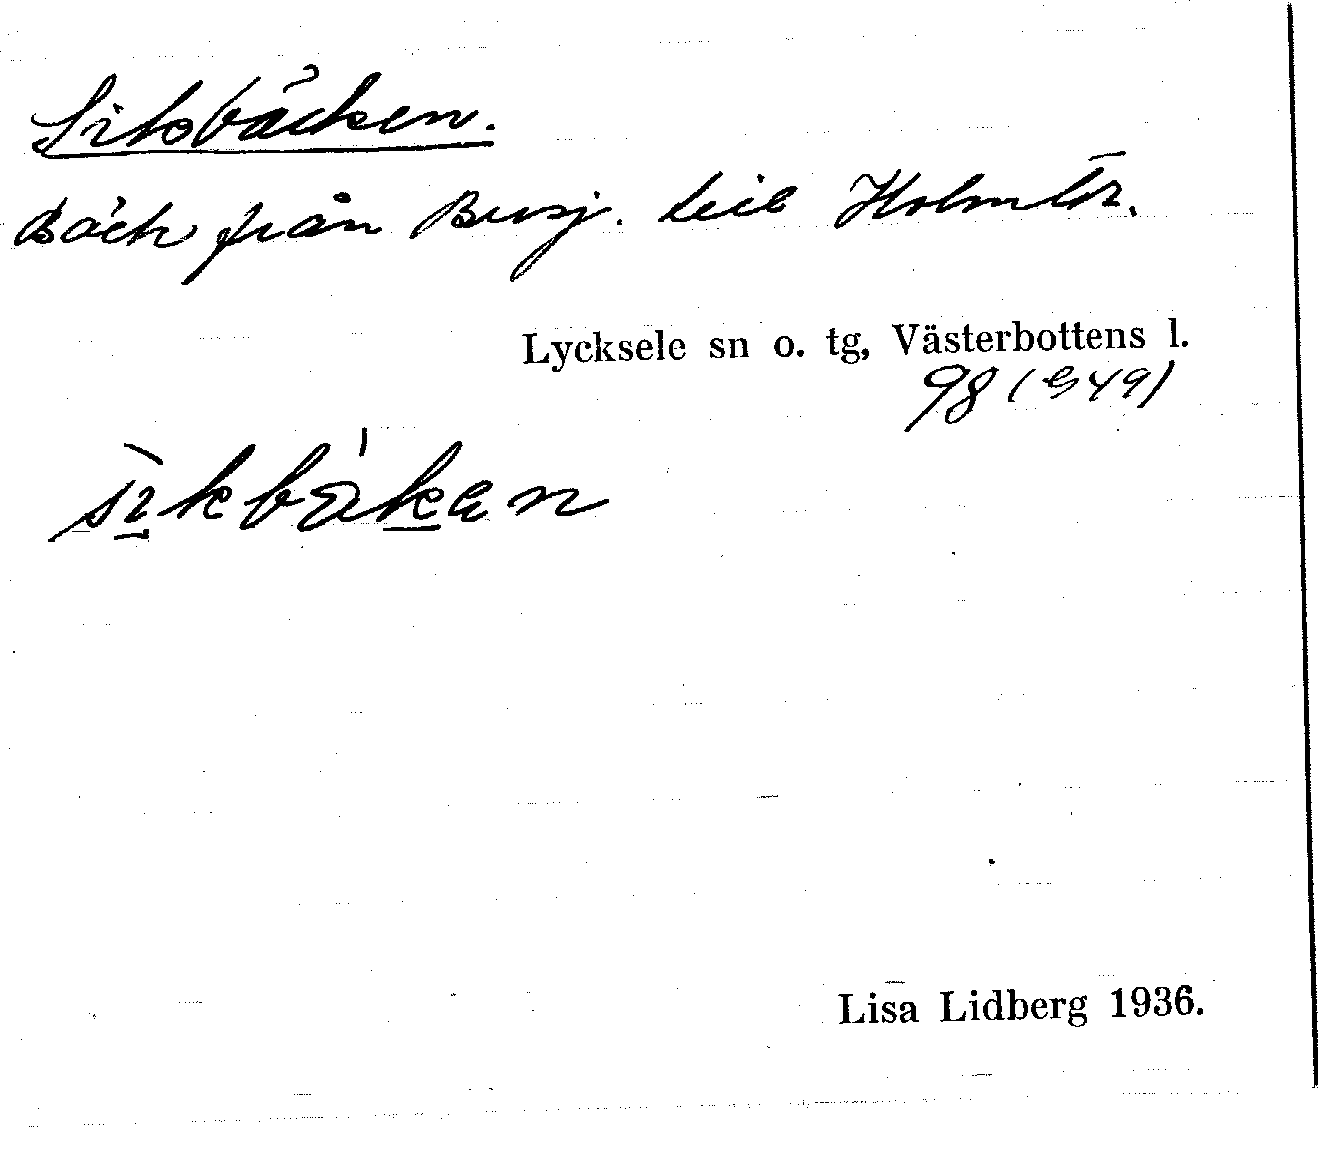 Sikbäcken.
Bäck från Busj. till Holmtr.
Lycksele sn o. tg, Västerbottens l.
98 (S49)
sìkbäkan
Lisa Lidberg 1936.